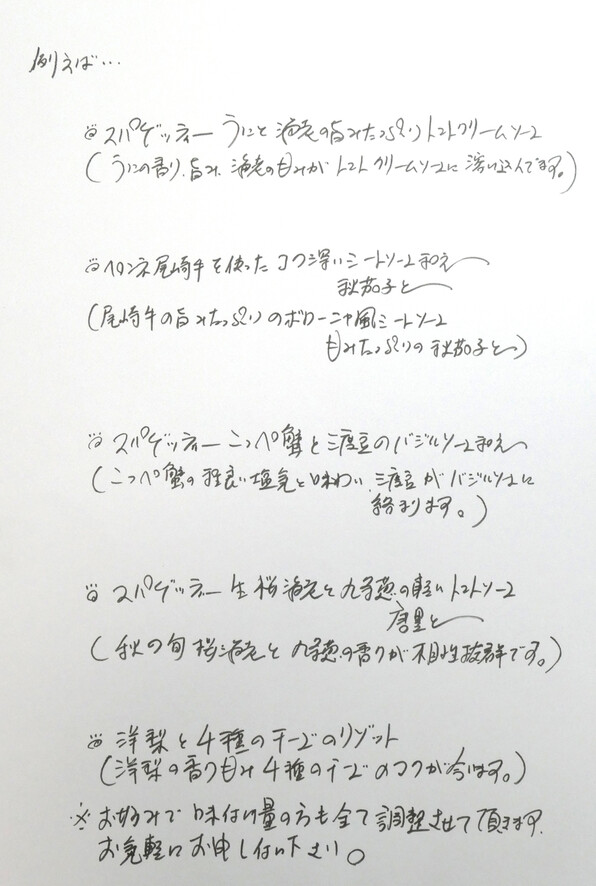 例えば…
スパゲッティー うにと海老の旨みたっぷりトマトクリームソース
(うにの香り、旨み、海老の甘みがトマトクリームソースに溶け込んでます。)
ペンネ 尾崎牛を使ったコク深いミートソース和え
秋茄子と
(尾崎牛の旨みたっぷりのボローニャ風ミートソース
甘みたっぷりの秋茄子と)
スパゲッティー こっぺ蟹と三度豆のバジルソース和え
(こっぺ蟹の程良い塩気と味わい、三度豆がバジルソースに
絡まります。)
スパゲッティー 生桜海老と九条葱の軽いトマトソース
唐墨と
(秋の旬 桜海老と九条葱の香りが相性抜群です。)
洋梨と4種のチーズのリゾット
(洋梨の香り甘み 4種のチーズのコクが合います。)
※お好みで味付け量の方も全て調整させて頂きます。
お気軽にお申し付け下さい。